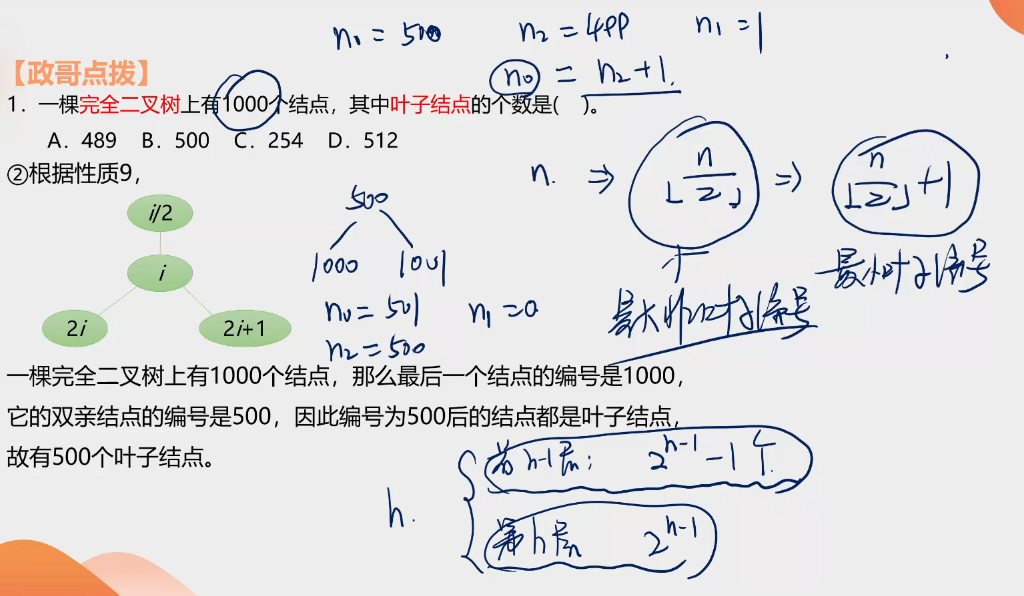 n₀ = 500 n₂ = 499 n₁ = 1
n₀ = n₂+1.
【政哥点拨】
1．一棵完全二叉树上有1000个结点，其中叶子结点的个数是( )。
A．489 B．500 C．254 D．512
②根据性质9，
n. ⇒ ⌊n/2⌋ ⇒ ⌊n/2⌋+1
最小叶子编号
i/2
i
2i 2i+1
500
1000 1001
n₀ = 501 n₁ = 0
n₂ = 500
一棵完全二叉树上有1000个结点，那么最后一个结点的编号是1000，
它的双亲结点的编号是500，因此编号为500后的结点都是叶子结点，
故有500个叶子结点。
h.
前h-1层： 2^(h-1) -1个
第h层 2^(h-1)